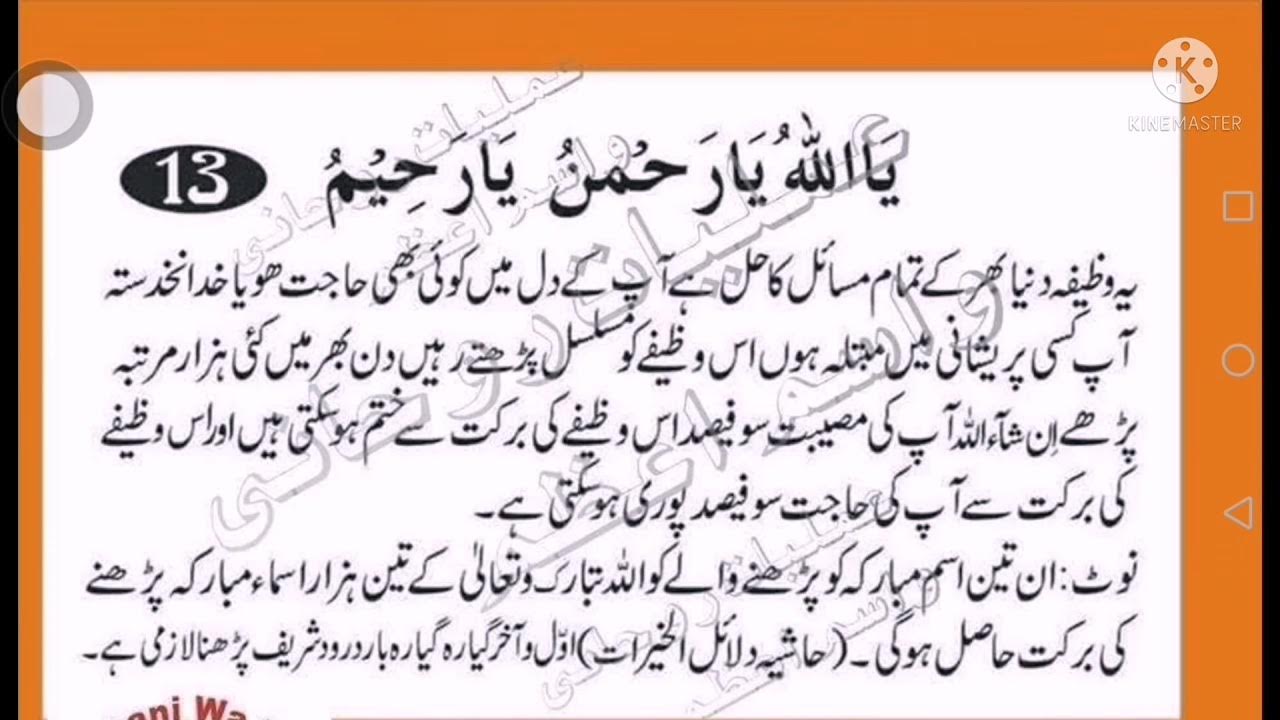 KINEMASTER
يَا اللهُ يَارَحْمٰنُ يَارَحِيْمُ
13
یہ وظیفہ دنیا بھر کے تمام مسائل کا حل ہے آپ کے دل میں کوئی بھی حاجت ھو یا خدانخدستہ
آپ کسی پریشانی میں مبتلہ ہوں اس وظیفے کو مسلسل پڑھتے رہیں دن بھر میں کئی ہزار مرتبہ
پڑھے اِن شآءاللہ آپ کی مصیبت سو فیصد اس وظیفے کی برکت سے ختم ہوسکتی ہیں اور اس وظیفے
کی برکت سے آپ کی حاجت سو فیصد پوری ہوسکتی ہے۔
نوٹ: ان تین اسم مبارکہ کو پڑھنے والے کو اللہ تبارک وتعالیٰ کے تین ہزار اسماء مبارکہ پڑھنے
کی برکت حاصل ہوگی۔ (حاشیہ دلائل الخیرات) اوّل و آخر گیارہ گیارہ بار درود شریف پڑھنا لازمی ہے۔
عملیات روحانی
و اسم اعظم